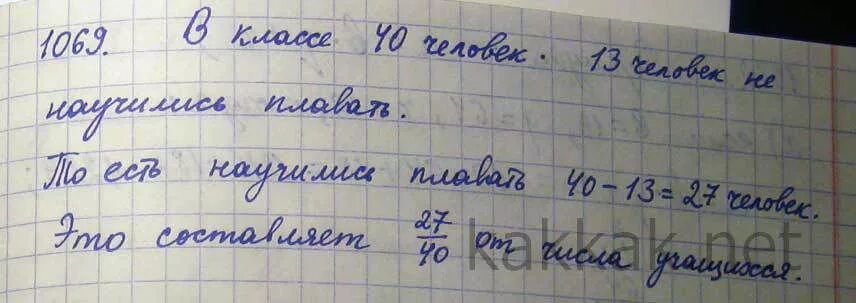 1069. В классе 40 человек. 13 человек не
научились плавать.
То есть научились плавать 40 - 13 = 27 человек.
Это составляет 27/40 от числа учащихся.
kakkak.net